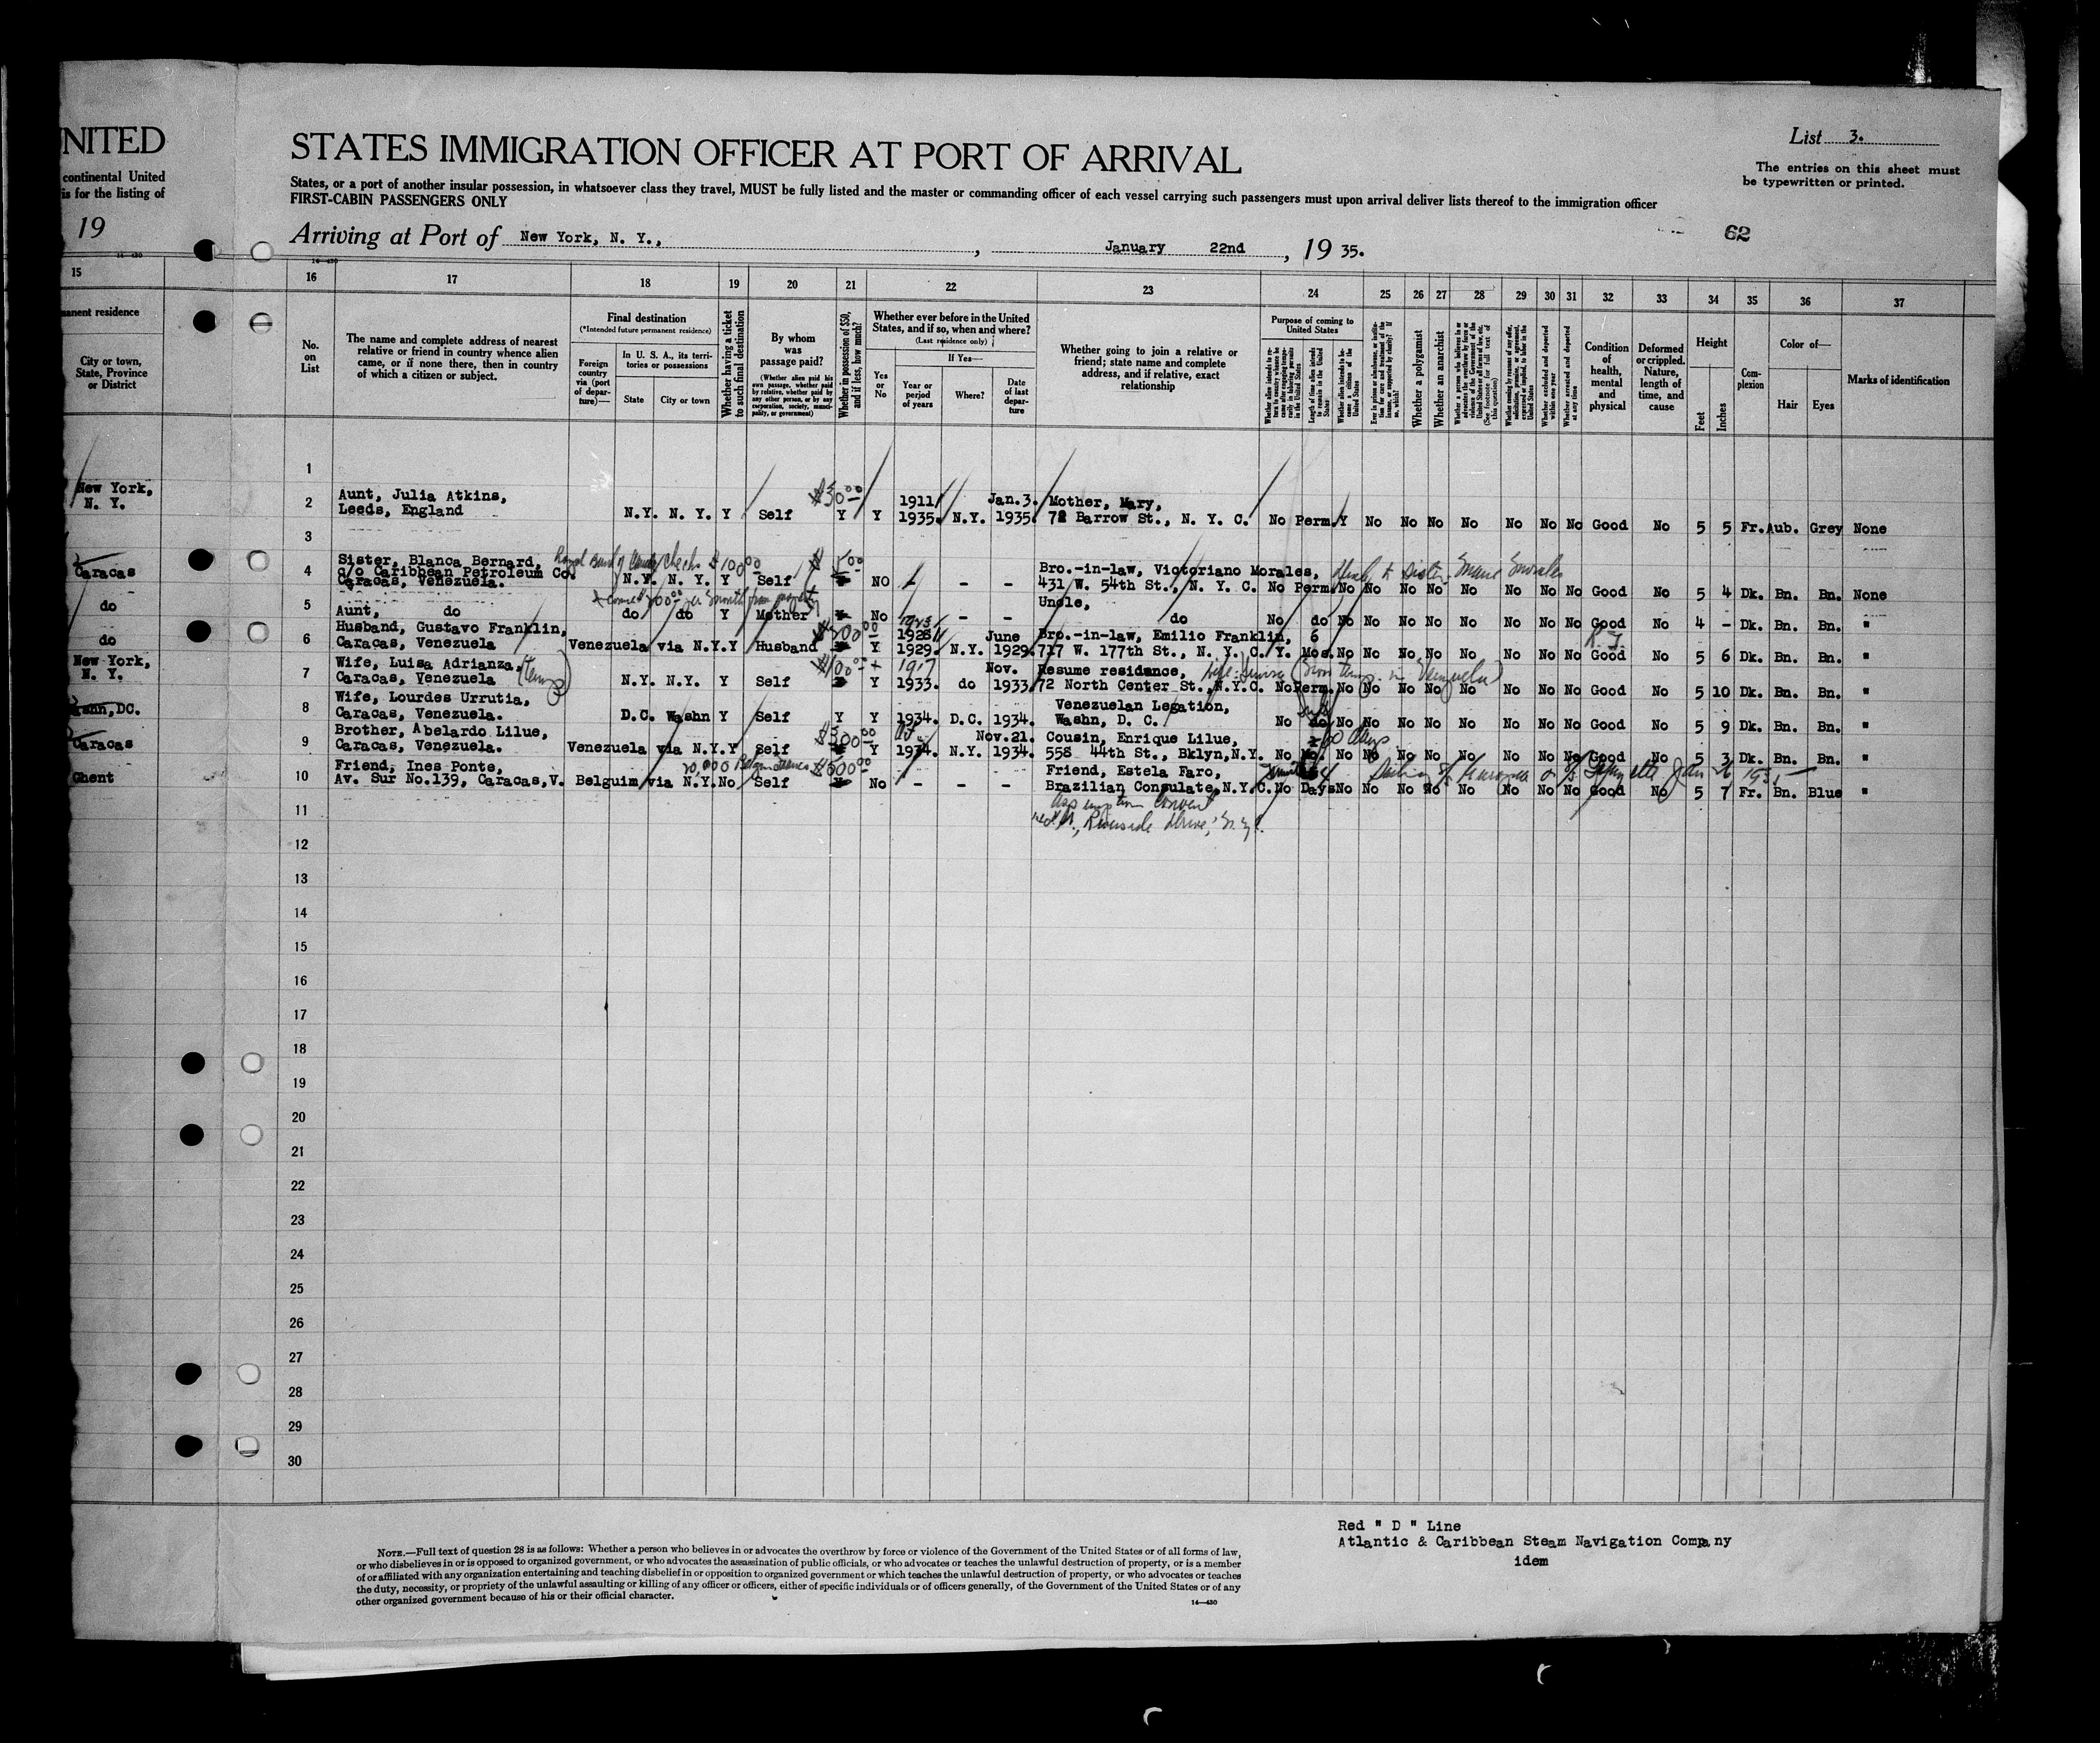 NITED
continental United
is for the listing of
19
STATES IMMIGRATION OFFICER AT PORT OF ARRIVAL
List 3.
The entries on this sheet must
be typewritten or printed.
States, or a port of another insular possession, in whatsoever class they travel, MUST be fully listed and the master or commanding officer of each vessel carrying such passengers must upon arrival deliver lists thereof to the immigration officer
FIRST-CABIN PASSENGERS ONLY
62
Arriving at Port of New York, N. Y., , January 22nd , 19 35.
15 16 17 18 19 20 21 22 23 24 25 26 27 28 29 30 31 32 33 34 35 36 37
manent residence
City or town,
State, Province
or District
No.
on
List
The name and complete address of nearest
relative or friend in country whence alien
came, or if none there, then in country
of which a citizen or subject.
Final destination
(*Intended future permanent residence)
Foreign
country
via (port
of depar-
ture)—
In U. S. A., its terri-
tories or possessions
State
City or town
Whether having a ticket
to such final destination
By whom
was
passage paid?
(Whether alien paid his
own passage, whether paid
by relative, whether paid by
any other person, or by any
corporation, society, munici-
pality, or government)
Whether in possession of $50,
and if less, how much?
Whether ever before in the United
States, and if so, when and where?
(Last residence only)
Yes
or
No
If Yes—
Year or
period
of years
Where?
Date
of last
depar-
ture
Whether going to join a relative or
friend; state name and complete
address, and if relative, exact
relationship
Purpose of coming to
United States
Whether a polygamist
Whether an anarchist
Condition
of
health,
mental
and
physical
Deformed
or crippled.
Nature,
length of
time, and
cause
Height
Feet
Inches
Com-
plexion
Color of—
Hair
Eyes
Marks of identification
1
New York,
N. Y.
2
Aunt, Julia Atkins,
Leeds, England
N.Y. N. Y. Y Self
$50.00
Y Y
1911
1935. N.Y.
Jan. 3.
1935.
Mother, Mary,
72 Barrow St., N. Y. C.
No Perm. Y No No No No No No No Good No 5 5 Fr. Aub. Grey None
3
Caracas
4
Sister, Blanca Bernard,
c/o Caribbean Petroleum Co.
Caracas, Venezuela.
N.Y. N. Y. Y Self NO - - -
Bro.-in-law, Victoriano Morales,
431 W. 54th St., N. Y. C.
No Perm. No No No No No No No No Good No 5 4 Dk. Bn. Bn. None
do
5
Aunt, do
do do Y Mother No - - -
Uncle,
do
No do No No No No No No No No Good No 4 - Dk. Bn. Bn. "
do
6
Husband, Gustavo Franklin,
Caracas, Venezuela
Venezuela via N.Y. Y Husband Y
1928
1929. N.Y.
June
1929.
Bro.-in-law, Emilio Franklin,
717 W. 177th St., N. Y. C.
Y. 6 Mos. No No No No No No No No Good No 5 6 Dk. Bn. Bn. "
New York,
N. Y.
7
Wife, Luisa Adrianza,
Caracas, Venezuela
N.Y. N.Y. Y Self
$100.00
Y
1917
1933. do
Nov.
1933
Resume residence,
72 North Center St., N.Y.C.
No Perm. No No No No No No No No Good No 5 10 Dk. Bn. Bn. "
Washn, DC.
8
Wife, Lourdes Urrutia,
Caracas, Venezuela.
D.C. Washn Y Self Y Y 1934. D.C. 1934.
Venezuelan Legation,
Washn, D. C.
No do No No No No No No No No Good No 5 9 Dk. Bn. Bn. "
Caracas
9
Brother, Abelardo Lilue,
Caracas, Venezuela.
Venezuela via N.Y. Y Self
$300.00
Y 1934. N.Y.
Nov. 21.
1934.
Cousin, Enrique Lilue,
558 44th St., Bklyn, N.Y.
60 days
No No No No No No No No No Good No 5 3 Dk. Bn. Bn. "
Ghent
10
Friend, Ines Ponte,
Av. Sur No.139, Caracas, V.
Belguim via N.Y. No Self
$500.00
No - - -
Friend, Estela Faro,
Brazilian Consulate, N.Y.C.
No Days No No No No No No No No Good No 5 7 Fr. Bn. Blue "
11
Riverside Drive, N.Y.
12
13
14
15
16
17
18
19
20
21
22
23
24
25
26
27
28
29
30
Red " D " Line
Atlantic & Caribbean Steam Navigation Company
idem
NOTE.—Full text of question 28 is as follows: Whether a person who believes in or advocates the overthrow by force or violence of the Government of the United States or of all forms of law,
or who disbelieves in or is opposed to organized government, or who advocates the assassination of public officials, or who advocates or teaches the unlawful destruction of property, or is a member
of or affiliated with any organization entertaining and teaching disbelief in or opposition to organized government or which teaches the unlawful destruction of property, or who advocates or teaches
the duty, necessity, or propriety of the unlawful assaulting or killing of any officer or officers, either of specific individuals or of officers generally, of the Government of the United States or of any
other organized government because of his or their official character.
14—430